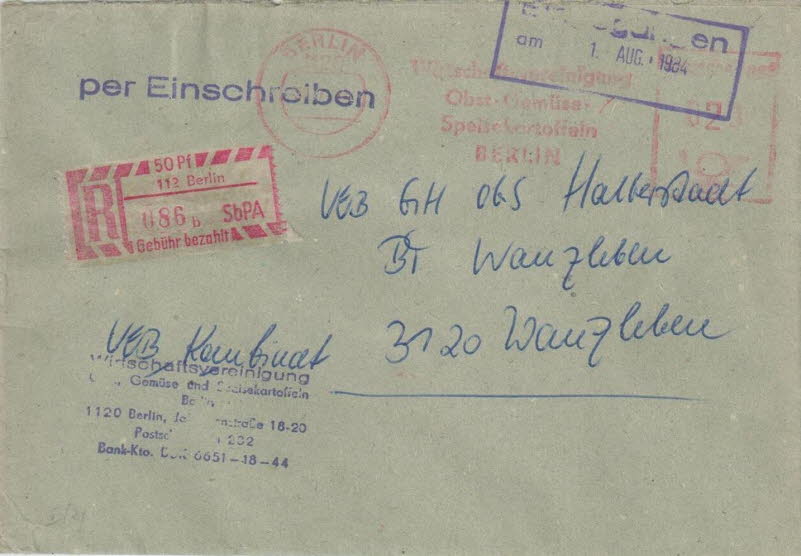 BERLIN
am 1. AUG. 1984
per Einschreiben
Wirtschaftsvereinigung
Obst-Gemüse-
Speisekartoffeln
BERLIN
50 Pf
112 Berlin
R
086 b SbPA
Gebühr bezahlt
VEB GH OGS Halberstadt
BT Wanzleben
3120 Wanzleben
VEB Kombinat
Wirtschaftsvereinigung
Gemüse und Speisekartoffeln
1120 Berlin, 18-20
232
Bank-Kto. 6651-18-44